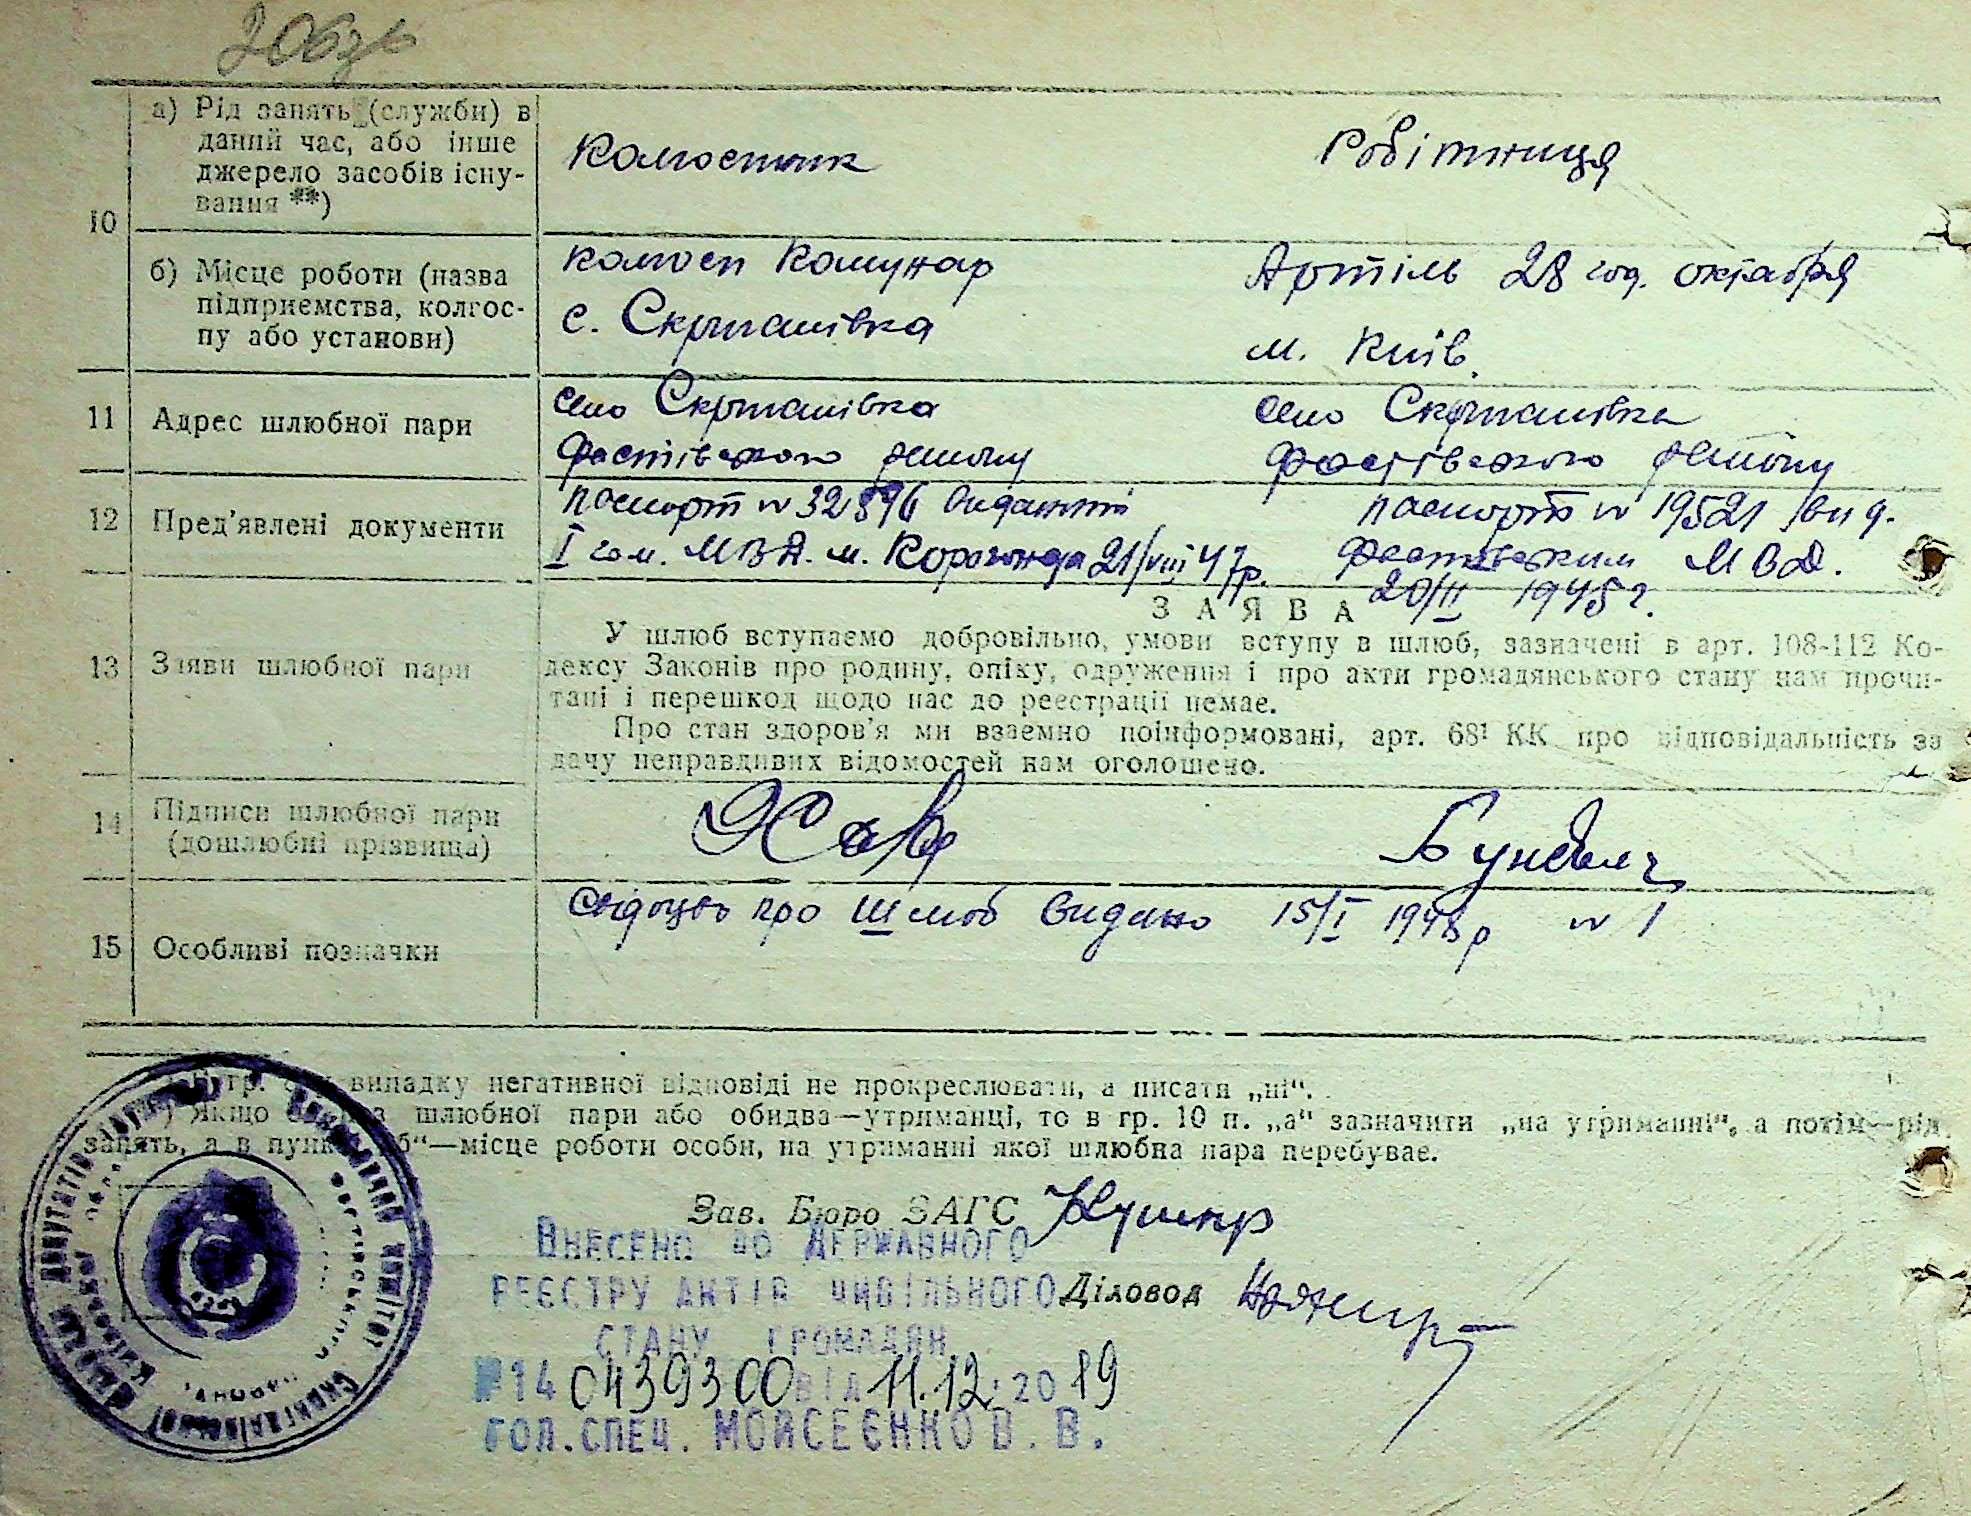 206зв
а) Рід занять (служби) в
даний час, або інше
джерело засобів існу-
вання **)
Колгоспник
Робітниця
10
б) Місце роботи (назва
підприємства, колгос-
пу або установи)
колгосп Комунар
с. Скригалівка
Артіль 28 год. октября
м. Київ.
11
Адрес шлюбної пари
село Скригалівка
Фастівського району
село Скригалівка
Фастівського району
12
Пред'явлені документи
паспорт № 32896 виданий
I МВД. м. 21/VIII 47р.
паспорт № 19521 вид.
Фастівським МВД.
20/II 1945 г.
13
Заяви шлюбної пари
ЗАЯВА
У шлюб вступаємо добровільно, умови вступу в шлюб, зазначені в арт. 108-112 Ко-
дексу Законів про родину, опіку, одруження і про акти громадянського стану нам прочи-
тані і перешкод щодо нас до реєстрації немає.
Про стан здоров'я ми взаємно поінформовані, арт. 68¹ КК про відповідальність за
дачу неправдивих відомостей нам оголошено.
14
Підписи шлюбної пари
(дошлюбні прізвища)
15
Особливі позначки
Свідоцтво про шлюб видано 15/I 1948 р № 1
випадку негативної відповіді не прокреслювати, а писати „ні".
Якщо шлюбної пари або обидва—утриманці, то в гр. 10 п. „а" зазначити „на утриманні", а потім—рід
занять, а в пункті „б"—місце роботи особи, на утриманні якої шлюбна пара перебуває.
Зав. Бюро ЗАГС Кушнір
Внесено до Державного
реєстру актів цивільного
Діловод
стану громадян
№14 0439300 від 11.12.2019
гол.спец. Мойсеєнко В.В.